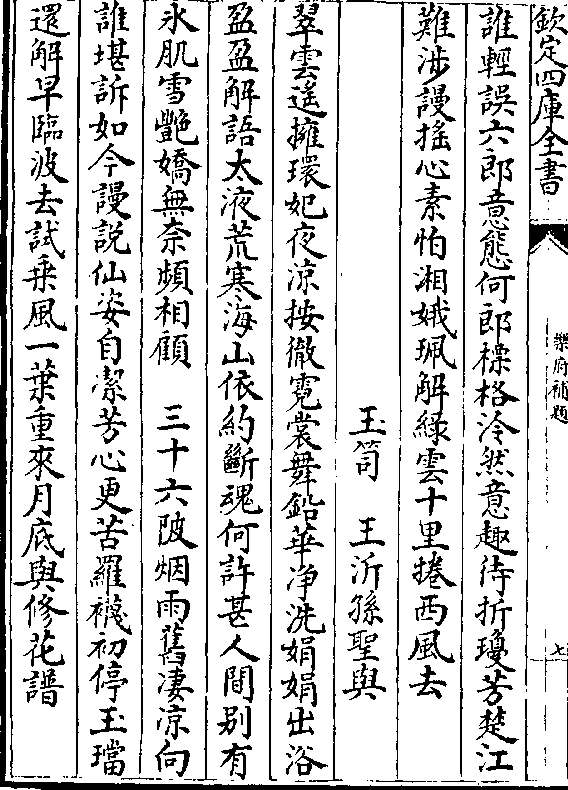 欽定四庫全書
樂府補題
七
誰輕誤六郎意態何郎標格泠然意趣待折瓊芳楚江
難涉謾揺心素怕湘娥珮解綠雲十里捲西風去
玉笥　王沂孫聖與
翠雲遙擁環妃夜涼按徹霓裳舞鉛華淨洗娟娟出浴
盈盈解語太液荒寒海山依約斷魂何許甚人間别有
氷肌雪艶嬌無奈頻相顧　三十六陂烟雨舊凄涼向
誰堪訴如今謾説仙姿自潔芳心更苦羅襪初停玉璫
還解早臨波去試乗風一葉重來月底與修花譜